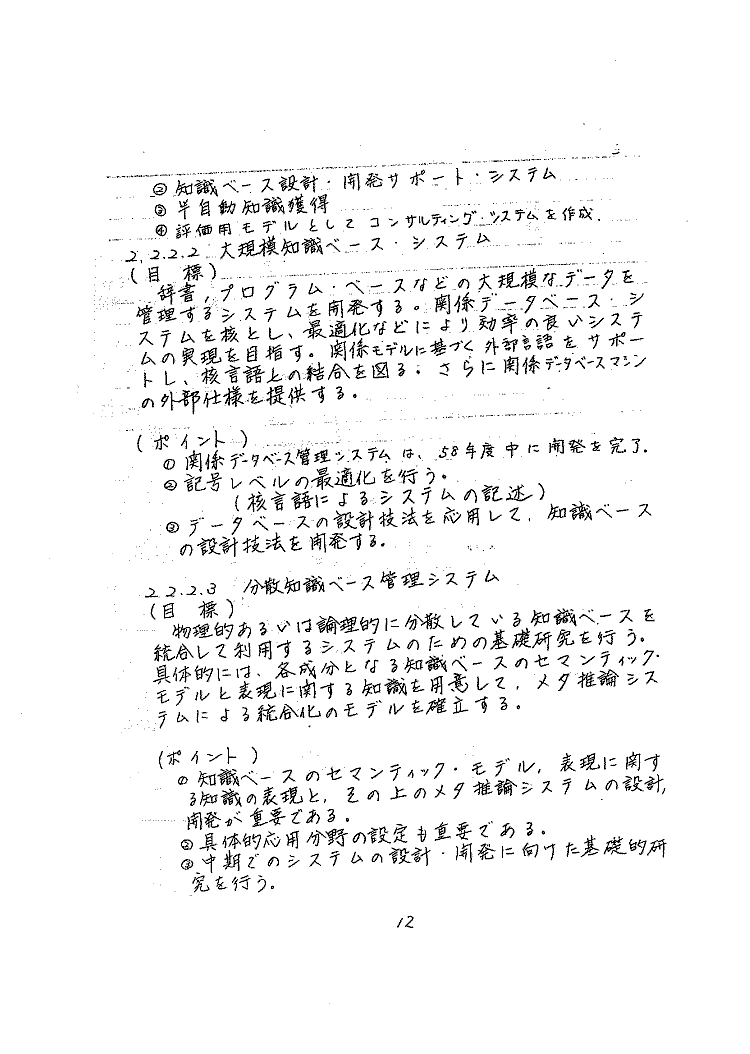 ② 知識ベース設計・開発サポート・システム
③ 半自動知識獲得
④ 評価用モデルとしてコンサルティング・システムを作成.
2.2.2.2 大規模知識ベース・システム
(目 標)
辞書, プログラム・ベースなどの大規模なデータを
管理するシステムを開発する。関係データベース・シ
ステムを核とし、最適化などにより効率の良いシステ
ムの実現を目指す。関係モデルに基づく外部言語をサポー
トし、核言語との結合を図る。さらに関係データベースマシン
の外部仕様を提供する。
(ポイント)
① 関係データベース管理システムは、58年度中に開発を完了.
② 記号レベルの最適化を行う。
(核言語によるシステムの記述)
③ データベースの設計技法を応用して、知識ベース
の設計技法を開発する。
2.2.2.3 分散知識ベース管理システム
(目 標)
物理的あるいは論理的に分散している知識ベースを
統合して利用するシステムのための基礎研究を行う。
具体的には、各成分となる知識ベースのセマンティック・
モデルと表現に関する知識を用意して、メタ推論シス
テムによる統合化のモデルを確立する。
(ポイント)
① 知識ベースのセマンティック・モデル, 表現に関す
る知識の表現と, その上のメタ推論システムの設計,
開発が重要である。
② 具体的応用分野の設定も重要である。
③ 中期でのシステムの設計・開発に向けた基礎的研
究を行う。
12